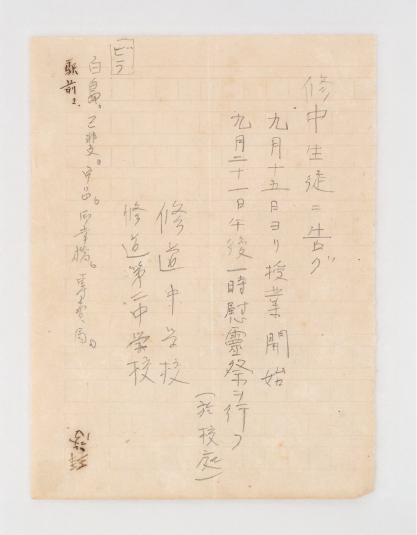 修中生徒ニ告グ
九月十五日ヨリ授業開始
九月二十一日午後一時慰靈祭ヲ行フ
(於校庭)
修道中学校
修道第二中学校
ビラ
白島、己斐、
駅前ニ